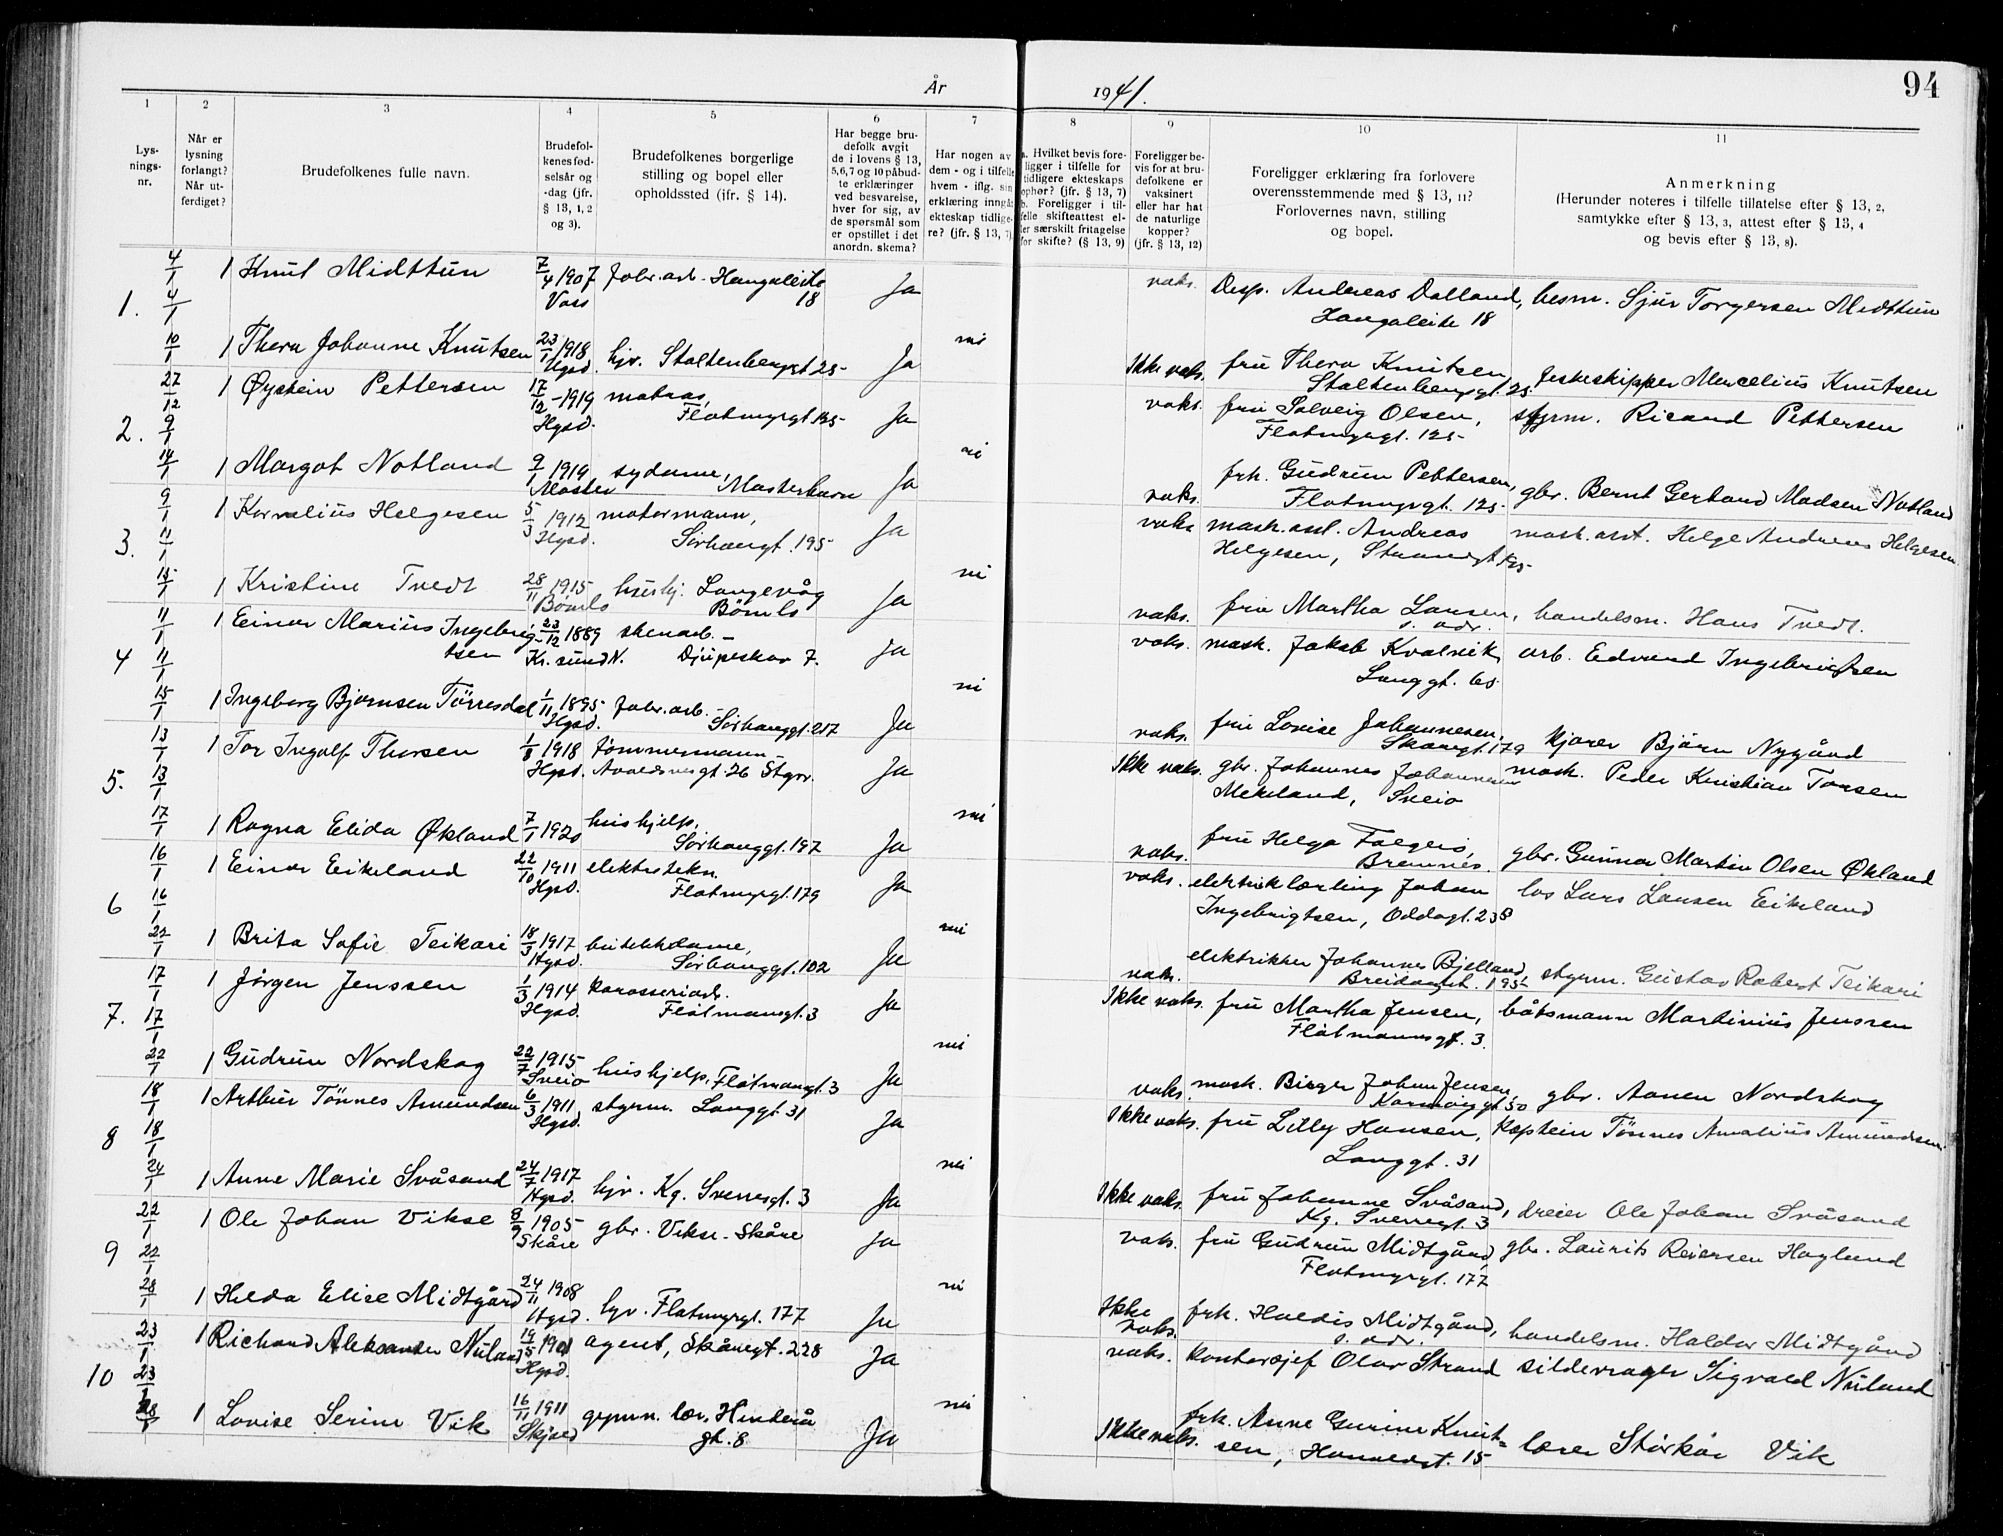 År 1941.
94
1 2 3 4 5 6 7 8 9 10 11
Lys-
nings-
nr.
Når er
lysning
forlangt?
Når ut-
ferdiget?
Brudefolkenes fulle navn.
Brudefol-
kenes fød-
selsår og
-dag (jfr.
§ 13, 1, 2
og 3).
Brudefolkenes borgerlige
stilling og bopel eller
opholdssted (jfr. § 14).
Har begge bru-
defolk avgit
de i lovens § 13,
5,6,7 og 10 påbud-
te erklæringer
ved besvarelse,
hver for sig, av
de spørsmål som
er opstillet i det
anordn. skema?
Har nogen av
dem - og i tilfelle
hvem - iflg. sin
erklæring inngåt
ekteskap tidlige-
re? (jfr. § 13, 7)
a. Hvilket bevis fore-
ligger i tilfelle for
tidligere ekteskaps
ophør? (jfr. § 13, 7)
b. Foreligger i til-
felle skifteattest el-
ler særskilt fritagelse
for skifte? (§ 13, 9)
Foreligger be-
vis for at bru-
defolkene er
vaksinert
eller har hat
de naturlige
kopper?
(jfr. § 13, 12)
Foreligger erklæring fra forlovere
overensstemmende med § 13, 11?
Forlovernes navn, stilling
og bopel.
Anmerkning
(Herunder noteres i tilfelle tillatelse efter § 13, 2,
samtykke efter § 13, 3, attest efter § 13, 4
og bevis efter § 13, 8).
1. 4/1 4/1 1 Knut Midttun 7/4 1907 Voss Fabr.arb. Hangaleite 18 Ja vaks. Desp. Andreas Dalland, Hangaleite 18 besm. Sjur Torgersen Midttun
10/1 1 Thera Johanne Knutsen 23/1 1918 Hgsd. hjv. Stoltenbergst 25 Ja nei Ikke vaks. fru Thera Knutsen Stoltenbergsgt. 25 fiskeskipper Marcelius Knutsen
2. 27/12 9/1 1 Øystein Pettersen 17/12 - 1919 Hgsd. matros, Flotmyrgt 125 Ja vaks. fru Solveig Olsen, Flotmyrgt. 125 styrm. Ricard Pettersen
14/1 1 Margot Notland 9/1 1919 Moster sydame, Mosterhavn Ja nei vaks. frk. Gudrun Pettersen, Flotmyrgt. 125 gbr. Bernt Gerhard Madsen Notland
3. 9/1 11/1 1 Kornelius Helgesen 5/3 1912 Hgsd. motormann, Sørhauggt. 195 Ja vaks mask.asst. Andreas Helgesen, Strandgt 195 mask.asst. Helge Andreas Helgesen
15/1 1 Kristine Tvedt 28/11 1915 Bømlo hushj. Langevåg Bömlo Ja nei vaks. fru Martha Larsen, s. adr. handelsm. Hans Tvedt.
4 11/1 11/1 1 Einar Marius Ingebrig-tsen 23/12 1889 Kr.sund N. Djupeskar 7. Ja vaks. mask. Jakob Kvalvik, Langgt. 65 arb. Edvard Ingebrigtsen
15/1 1 Ingeborg Bjornsen Tørresdal 1/11 1895 Hgsd. Fabr.arb. Sørhauggt. 217 Ja nei vaks. fru Lovise Johannesen, Skåregt. 179 kjører Björn Nygård
5. 13/1 13/1 1 Tor Ingolf Thorsen 1/8 1918 Hgsd. tömmermann, Avaldsnesgt. 26 Ja Ikke vaks. gbr. Johannes Johannesen Mekeland, Sveio mask. Peder Kristian Torsen
17/1 1 Ragna Elida Økland 7/1 1920 hushjelp, Sørhauggt. 197 Ja nei vaks. fru Helga Fagerö, Bremnes gbr. Gunnar Martin Olsen Økland
6 16/1 16/1 1 Einar Eikeland 22/10 1911 Hgsd. elektrotekn. Flotmyrgt. 179 Ja vaks. elektriklærling Johan Ingebrigtsen, Oddagt. 238 los Lars Larsen Eikeland
22/1 1 Brita Sofie Teikari 18/3 1917 Hgsd. butikkdame, Sørhauggt. 102 Ja nei vaks. elektriker Johannes Bjelland, Breidablikgt. 195 styrm. Gustav Robert Teikari
7. 17/1 17/1 1 Jörgen Jenssen 1/3 1914 Hgsd. karosseriarb. Flåtmansgt. 3 Ja Ikke vaks. fru Martha Jensen, Flåtmannsgt. 3. båtsmann Martinius Jenssen
22/1 1 Gudrun Nordskog 22/7 1915 Sveio hushjelp, Flåtmansgt. 3 Ja nei vaks. mask. Birger Johan Jensen, Karmöygt 50 gbr. Aanen Nordskog
8 18/1 18/1 1 Arthur Tönnes Amundsen 6/3 1911 Hgsd. styrm. Langgt. 31 Ja Ikke vaks. fru Lilly Hansen, Langgt. 31 kaptein Tönnes Amalius Amundsen.
24/1 1 Anne Marie Svåsand 24/7 1917 Hgsd. hjv. Kg. Sverresgt. 3 Ja nei Ikke vaks. fru Johanne Svåsand, Kg. Sverregt. 3 dreier Ole Johan Svåsand
9 22/1 22/1 1 Ole Johan Vikse 8/9 1905 Skåre gbr. Vikse. Skåre Ja vaks. fru Gudrun Midtgård, Flotmyrgt. 177 gbr. Laurits Reiersen Hagland
28/1 1 Helda Elise Midtgård 24/11 1908 Hgsd. hjv. Flotmyrgt. 177 Ja nei Ikke vaks. frk. Haldis Midtgård, s. adr. handelsm. Haldor Midtgård
10 23/1 23/1 1 Richard Aleksander Nuland 19/5 1901 Hgsd. agent, Skåregt. 228 Ja vaks. kontorsjef Olav Strand sildevrager Sigvald Nuland
28/1 1 Lovise Serine Vik 16/11 1911 Skjold gymn. lær. Hinderå gt. 8 Ja nei Ikke vaks. frk. Anne Gurine Knut-sen, Haraldsgt. 15 lærer Störkår Vik